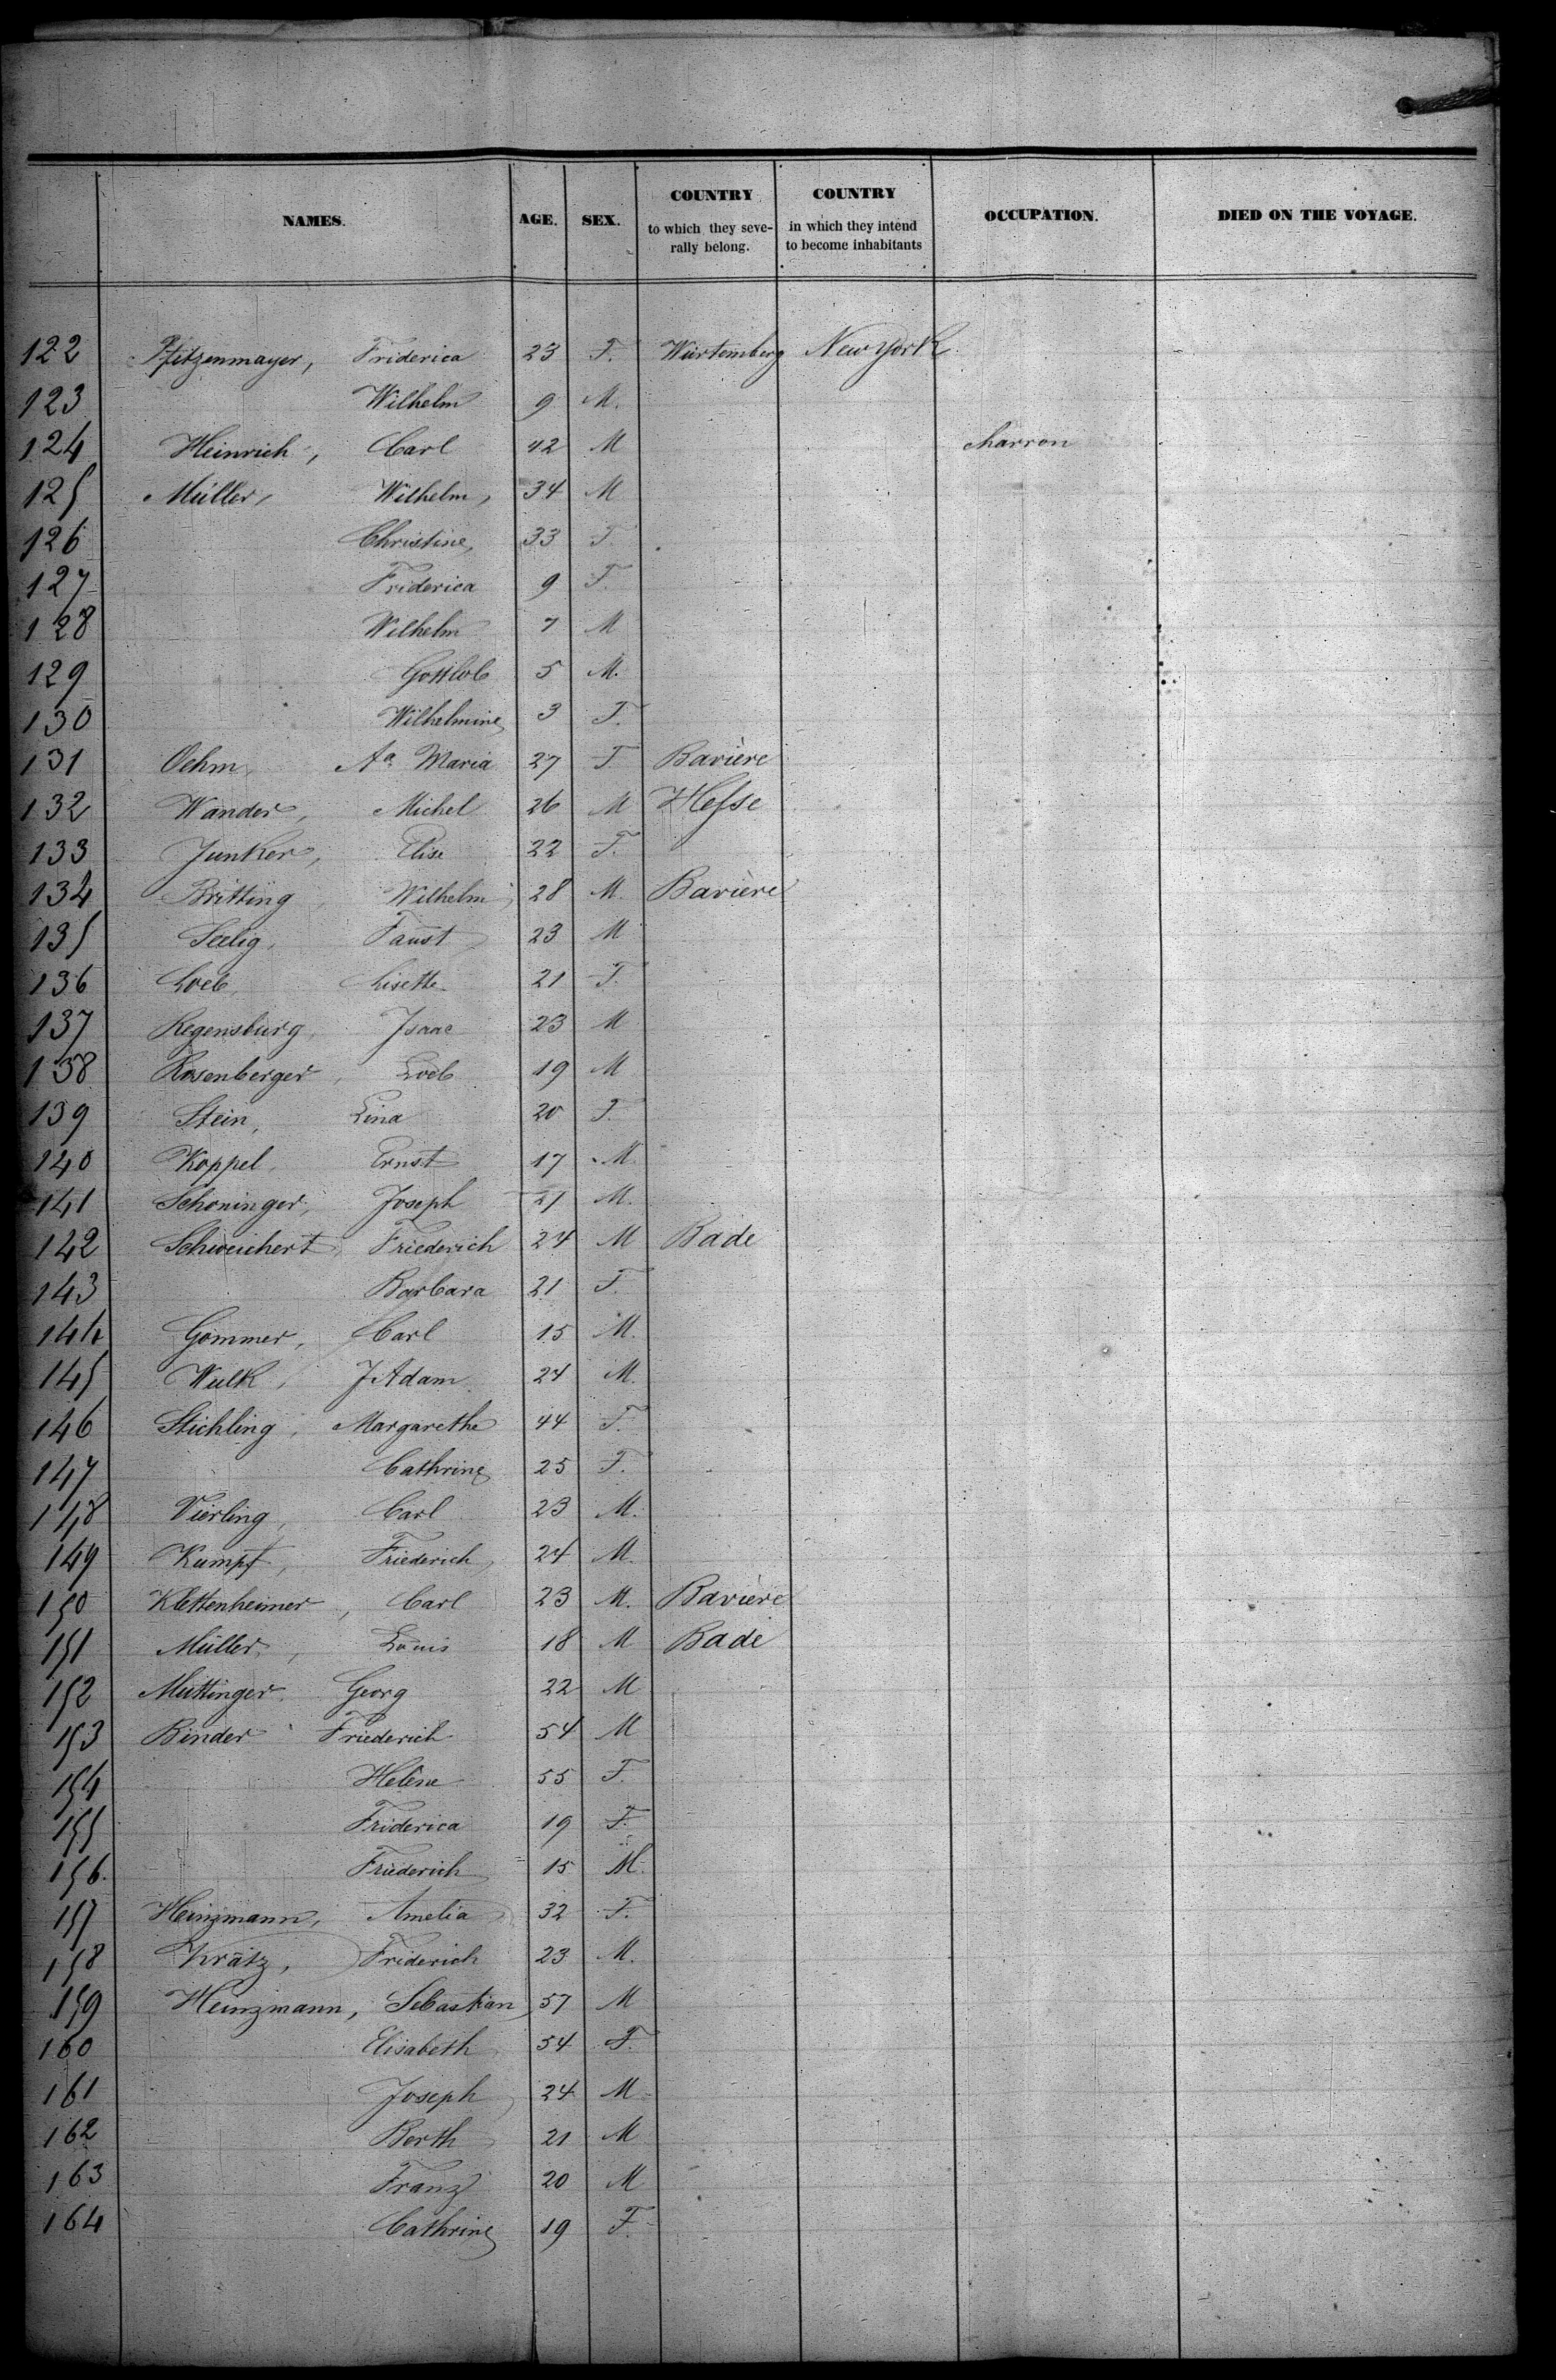 NAMES. AGE. SEX. COUNTRY to which they severally belong. COUNTRY in which they intend to become inhabitants OCCUPATION. DIED ON THE VOYAGE.
122 Pfitzenmayer, Friderica 23 F. Würtemberg New York
123 Wilhelm 9 M.
124 Heinrich, Carl 42 M charron
125 Müller, Wilhelm, 34 M
126 Christine, 33 F.
127 Friderica 9 F.
128 Wilhelm 7 M
129 Gottlob 5 M.
130 Wilhelmine 3 F.
131 Oehm, Aa Maria 27 F Bavière
132 Wander, Michel 26 M Hesse
133 Junker, Elise 22 F.
134 Britting, Wilhelm, 28 M. Bavière
135 Seelig, Faust 23 M
136 Loeb, Lisette 21 F.
137 Regensburg, Isaac 23 M
138 Rosenberger, Loeb 19 M
139 Stein, Lina 20 F.
140 Koppel, Ernst 17 M.
141 Schoninger, Joseph 21 M.
142 Schweichert, Friederich 24 M Bade
143 Barbara 21 F.
144 Gommer, Carl 15 M.
145 Wulk, J Adam 24 M.
146 Stichling, Margarethe 44 F.
147 Cathrine 25 F.
148 Vierling, Carl 23 M.
149 Kumpf, Friederich, 24 M.
150 Klettenheimer, Carl 23 M. Bavière
151 Müller, Louis 18 M Bade
152 Muttinger Georg 22 M
153 Binder Friederich 54 M
154 Helène 55 F.
155 Friderica 19 F.
156. Friederich 15 M.
157 Heinzmann, Amelia 32 F.
158 Krätz, Friderich 23 M.
159 Heinzmann, Sebastian 57 M
160 Elisabeth 54 F.
161 Joseph 24 M
162 Berth 21 M
163 Franz 20 M
164 Cathrine 19 F.